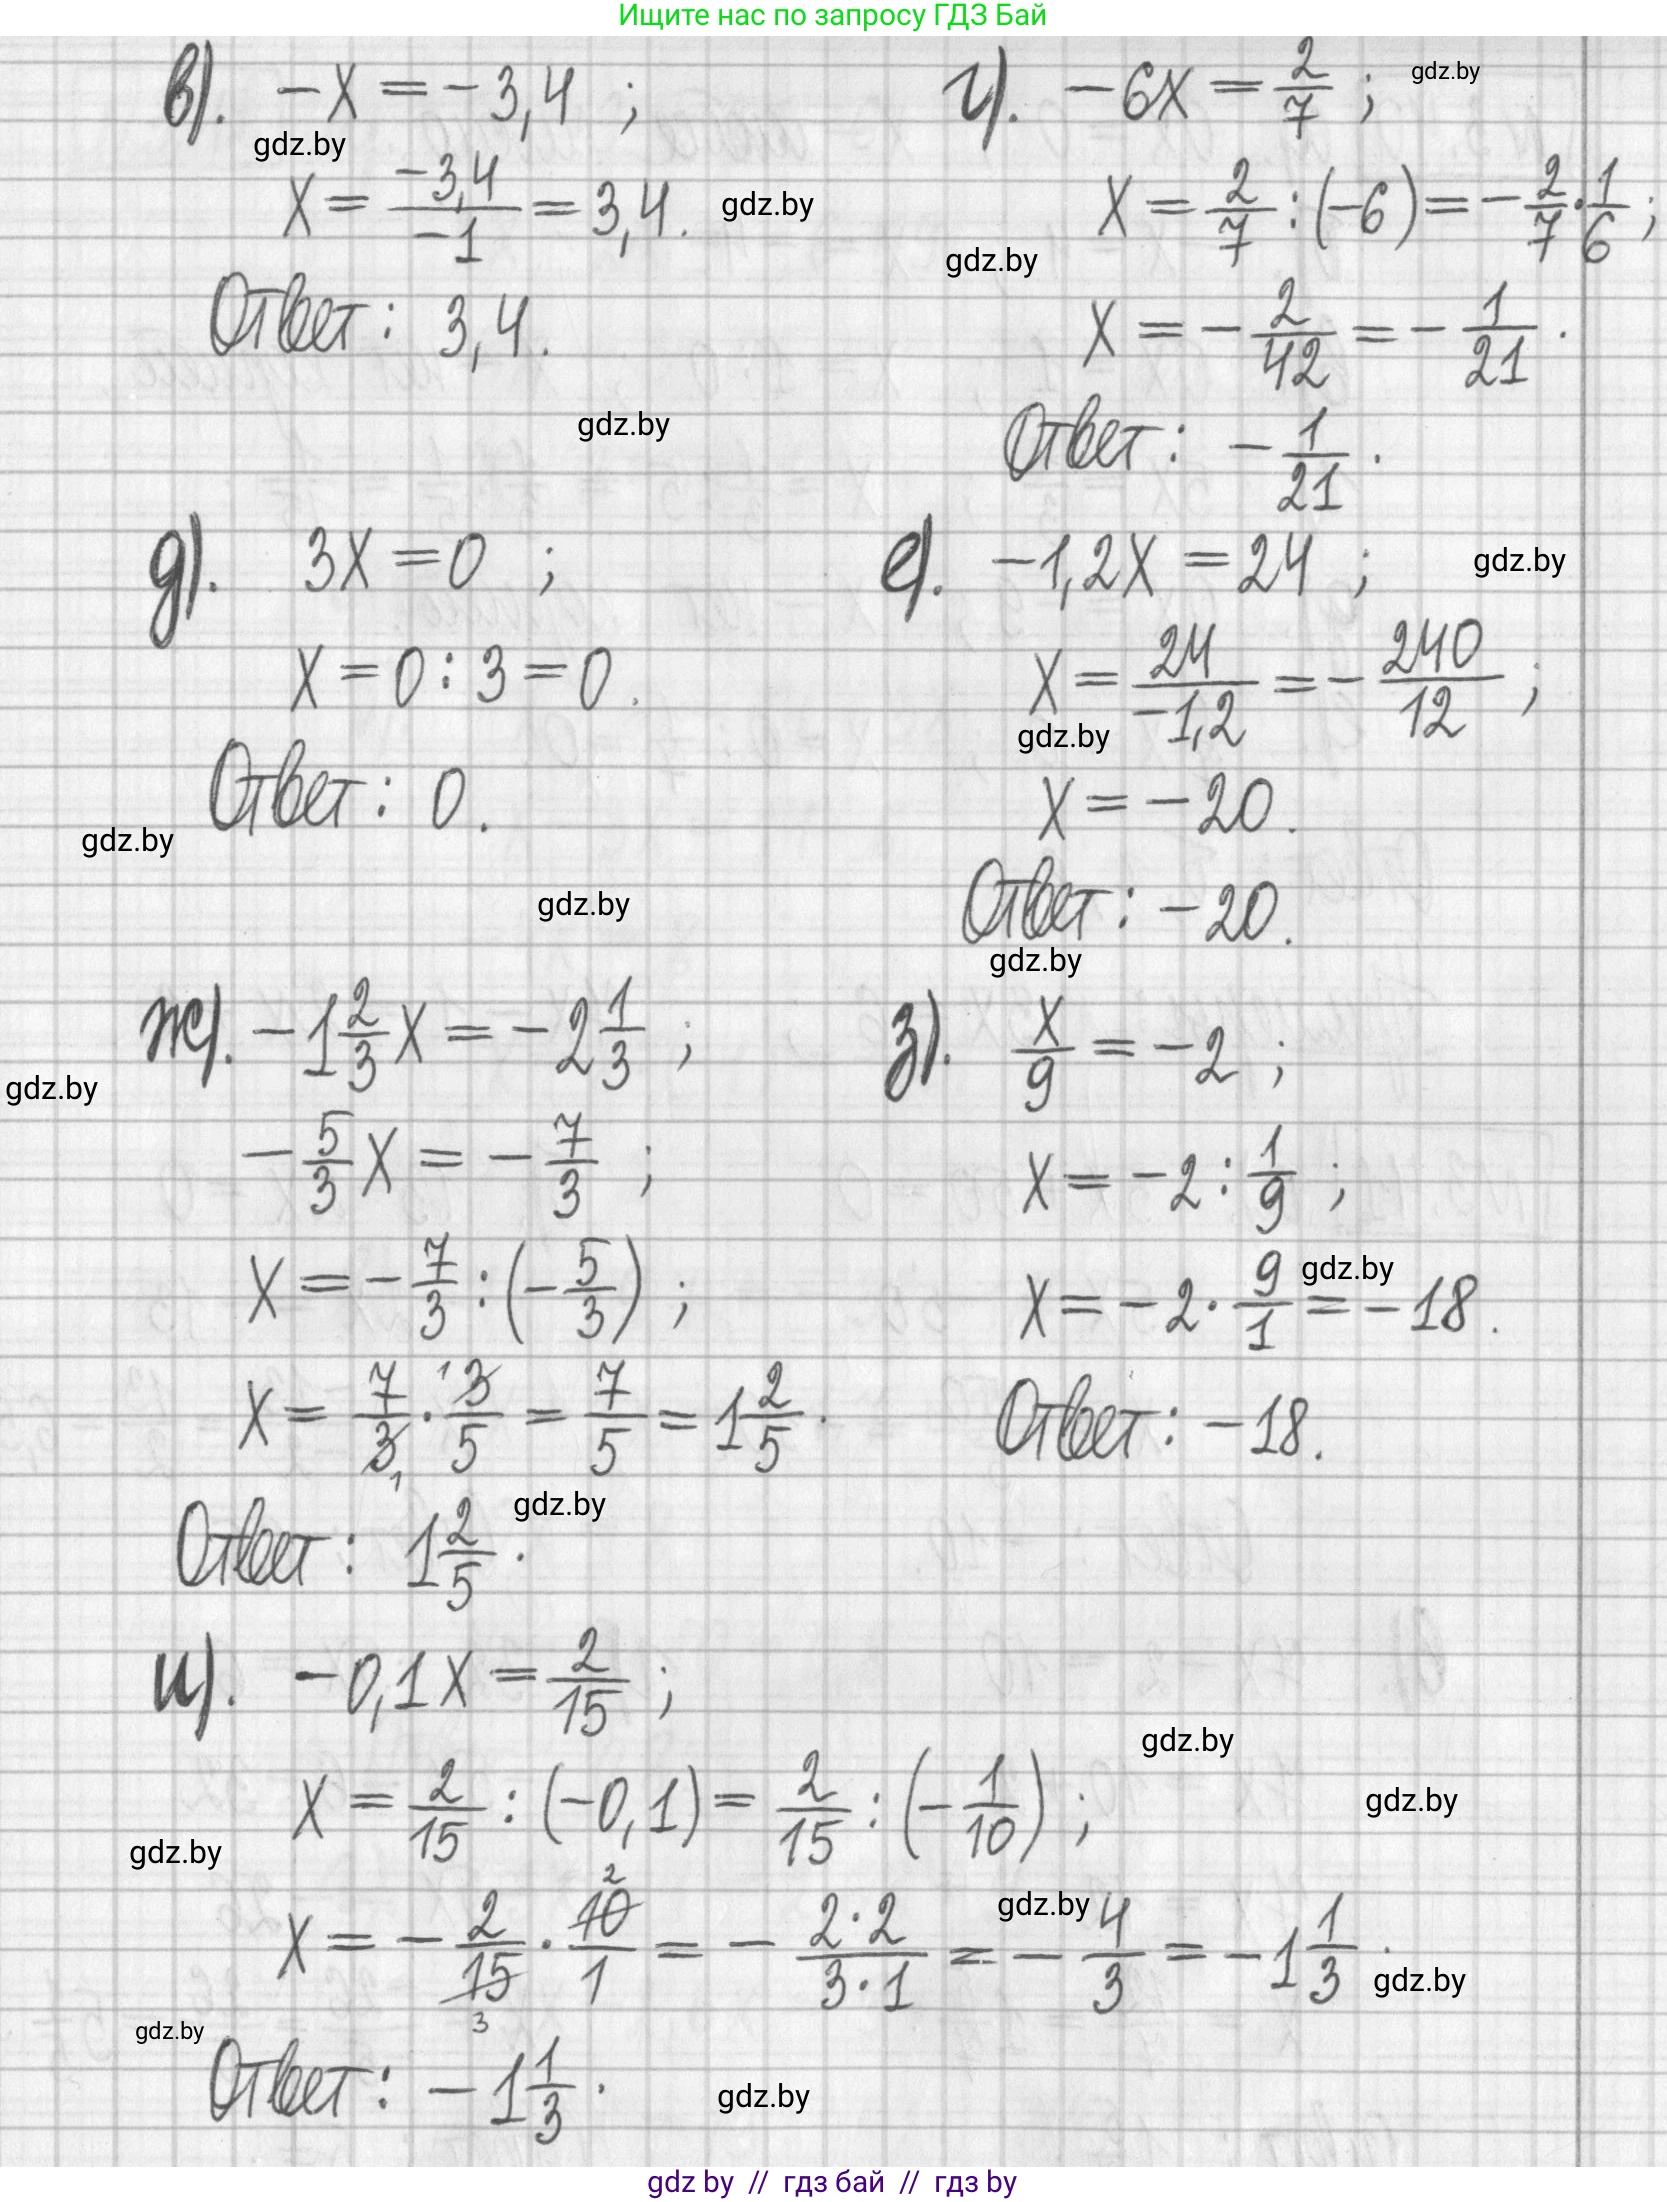 Ищите нас по запросу ГДЗ Бай
в). -x = -3,4 ;
gdz.by
x = -3,4/-1 = 3,4.
gdz.by
Ответ: 3,4.
gdz.by
г). -6x = 2/7 ;
gdz.by
x = 2/7 : (-6) = -2/7 · 1/6 ;
gdz.by
x = -2/42 = -1/21 .
Ответ: -1/21 .
д). 3x = 0 ;
x = 0 : 3 = 0.
Ответ: 0.
gdz.by
gdz.by
е). -1,2x = 24 ;
gdz.by
x = 24/-1,2 = -240/12 ;
gdz.by
x = -20.
Ответ: -20.
gdz.by
ж). -1 2/3 x = -2 1/3 ;
gdz.by
-5/3 x = -7/3 ;
x = -7/3 : (-5/3) ;
x = 7/3 1 · 1 3/5 = 7/5 = 1 2/5 .
Ответ: 1 2/5 .
gdz.by
з). x/9 = -2 ;
x = -2 : 1/9 ;
x = -2 · 9/1 = -18.
gdz.by
Ответ: -18.
и). -0,1x = 2/15 ;
gdz.by
x = 2/15 : (-0,1) = 2/15 : (-1/10) ;
gdz.by
gdz.by
x = -2/15 3 · 2 10/1 = -2·2/3·1 = -4/3 = -1 1/3 .
gdz.by
gdz.by
gdz.by
Ответ: -1 1/3 .
gdz.by
gdz by // гдз бай // гдз by